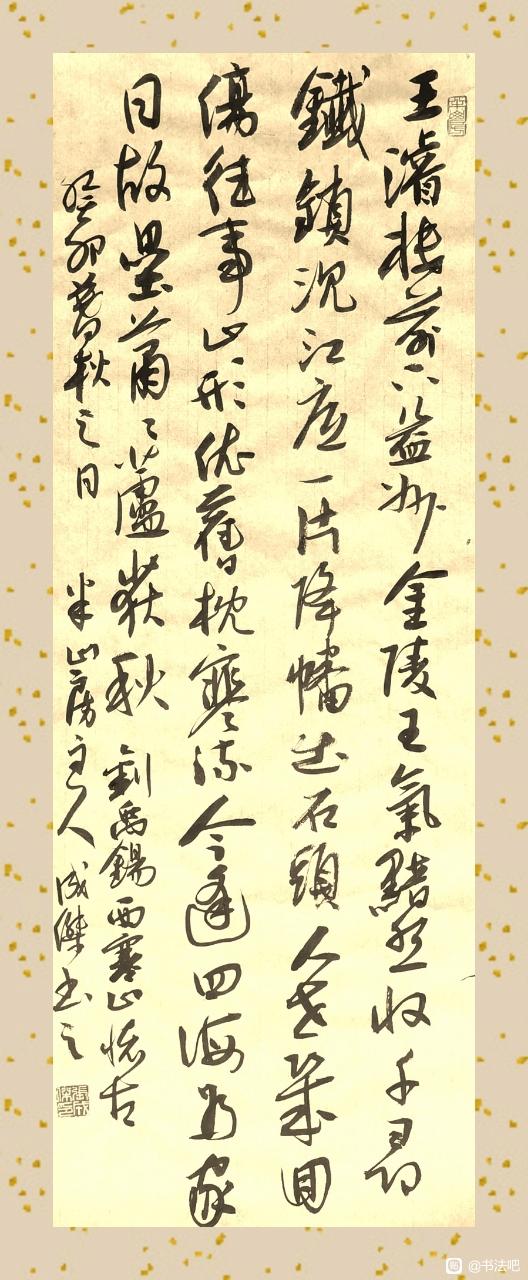 王濬樓船下益州金陵王氣黯然收千尋
鐵鎖沉江底一片降幡出石頭人世幾回
傷往事山形依舊枕寒流今逢四海為家
日故壘蕭〻蘆荻秋 劉禹錫西塞山懷古
癸卯暮秋之日 半山房主人成傑書之
張成傑印
貼 @书法吧